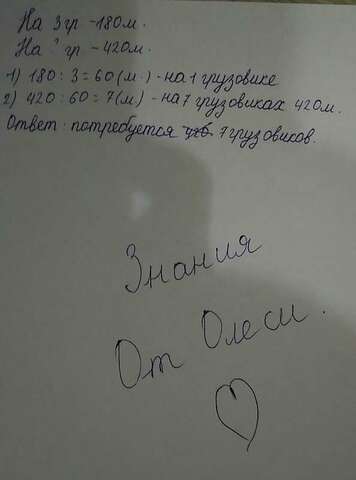 На 3 гр - 180 м.
На ? гр. - 420 м.
1) 180 : 3 = 60 (м.) - на 1 грузовике
2) 420 : 60 = 7 (м) - на 7 грузовиках 420 м.
Ответ : потребуется 7 грузовиков.
Знания
От Олеси.